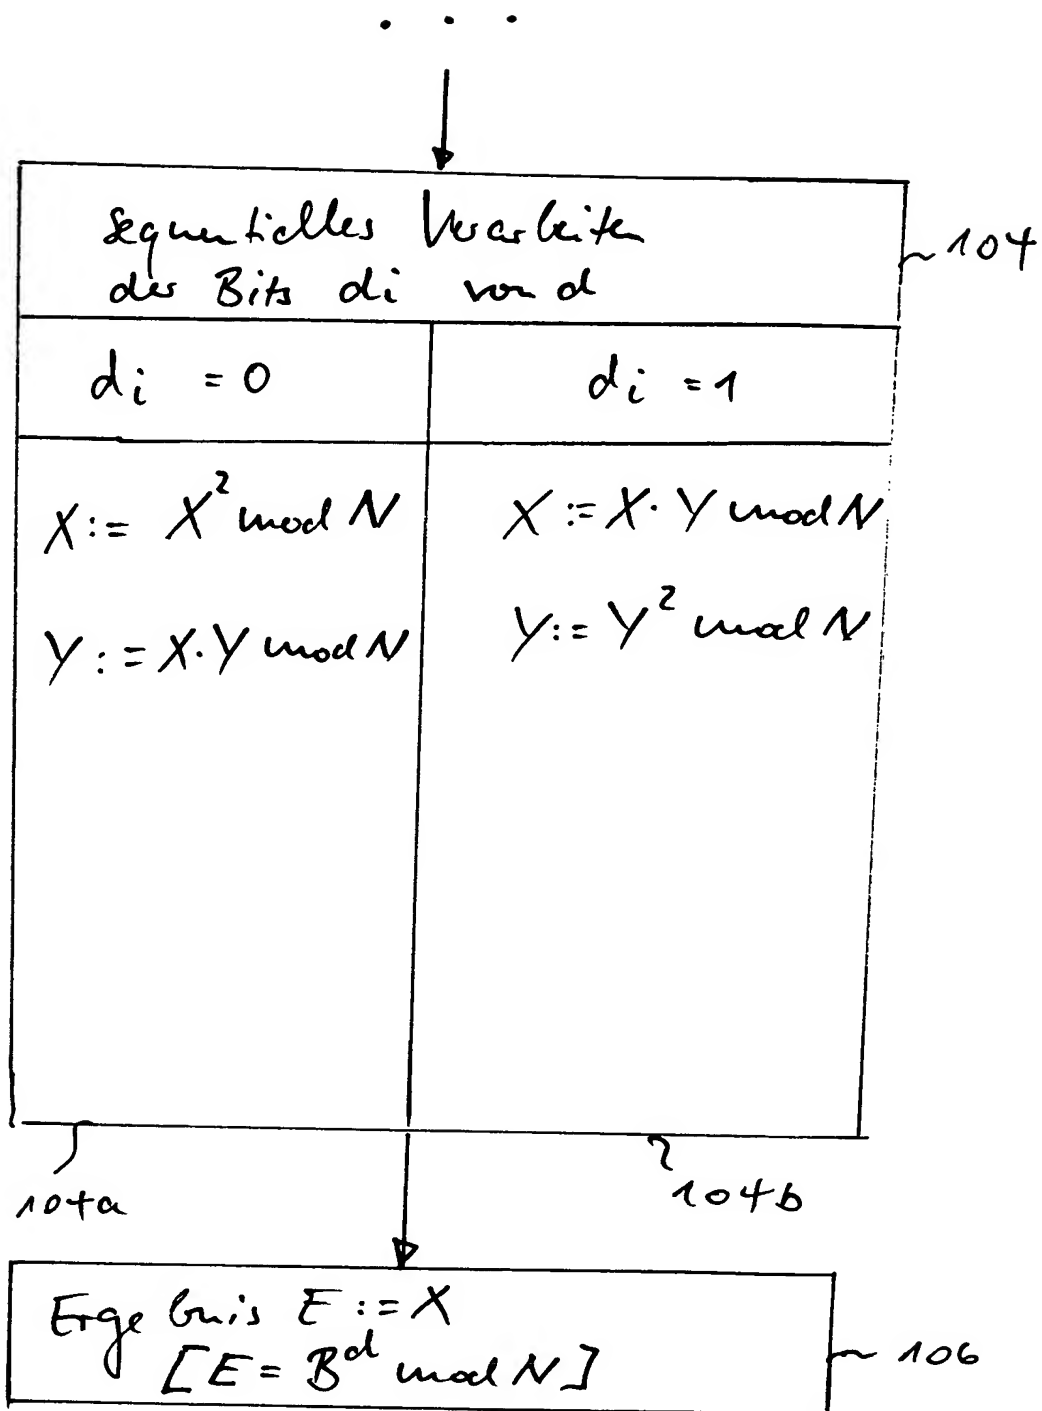 . . .
sequentielles Verarbeiten
der Bits di von d
~104
di = 0
di = 1
X := X² mod N
X := X · Y mod N
Y := X · Y mod N
Y := Y² mod N
104a
104b
Ergebnis E := X
[E = B^d mod N]
~ 106